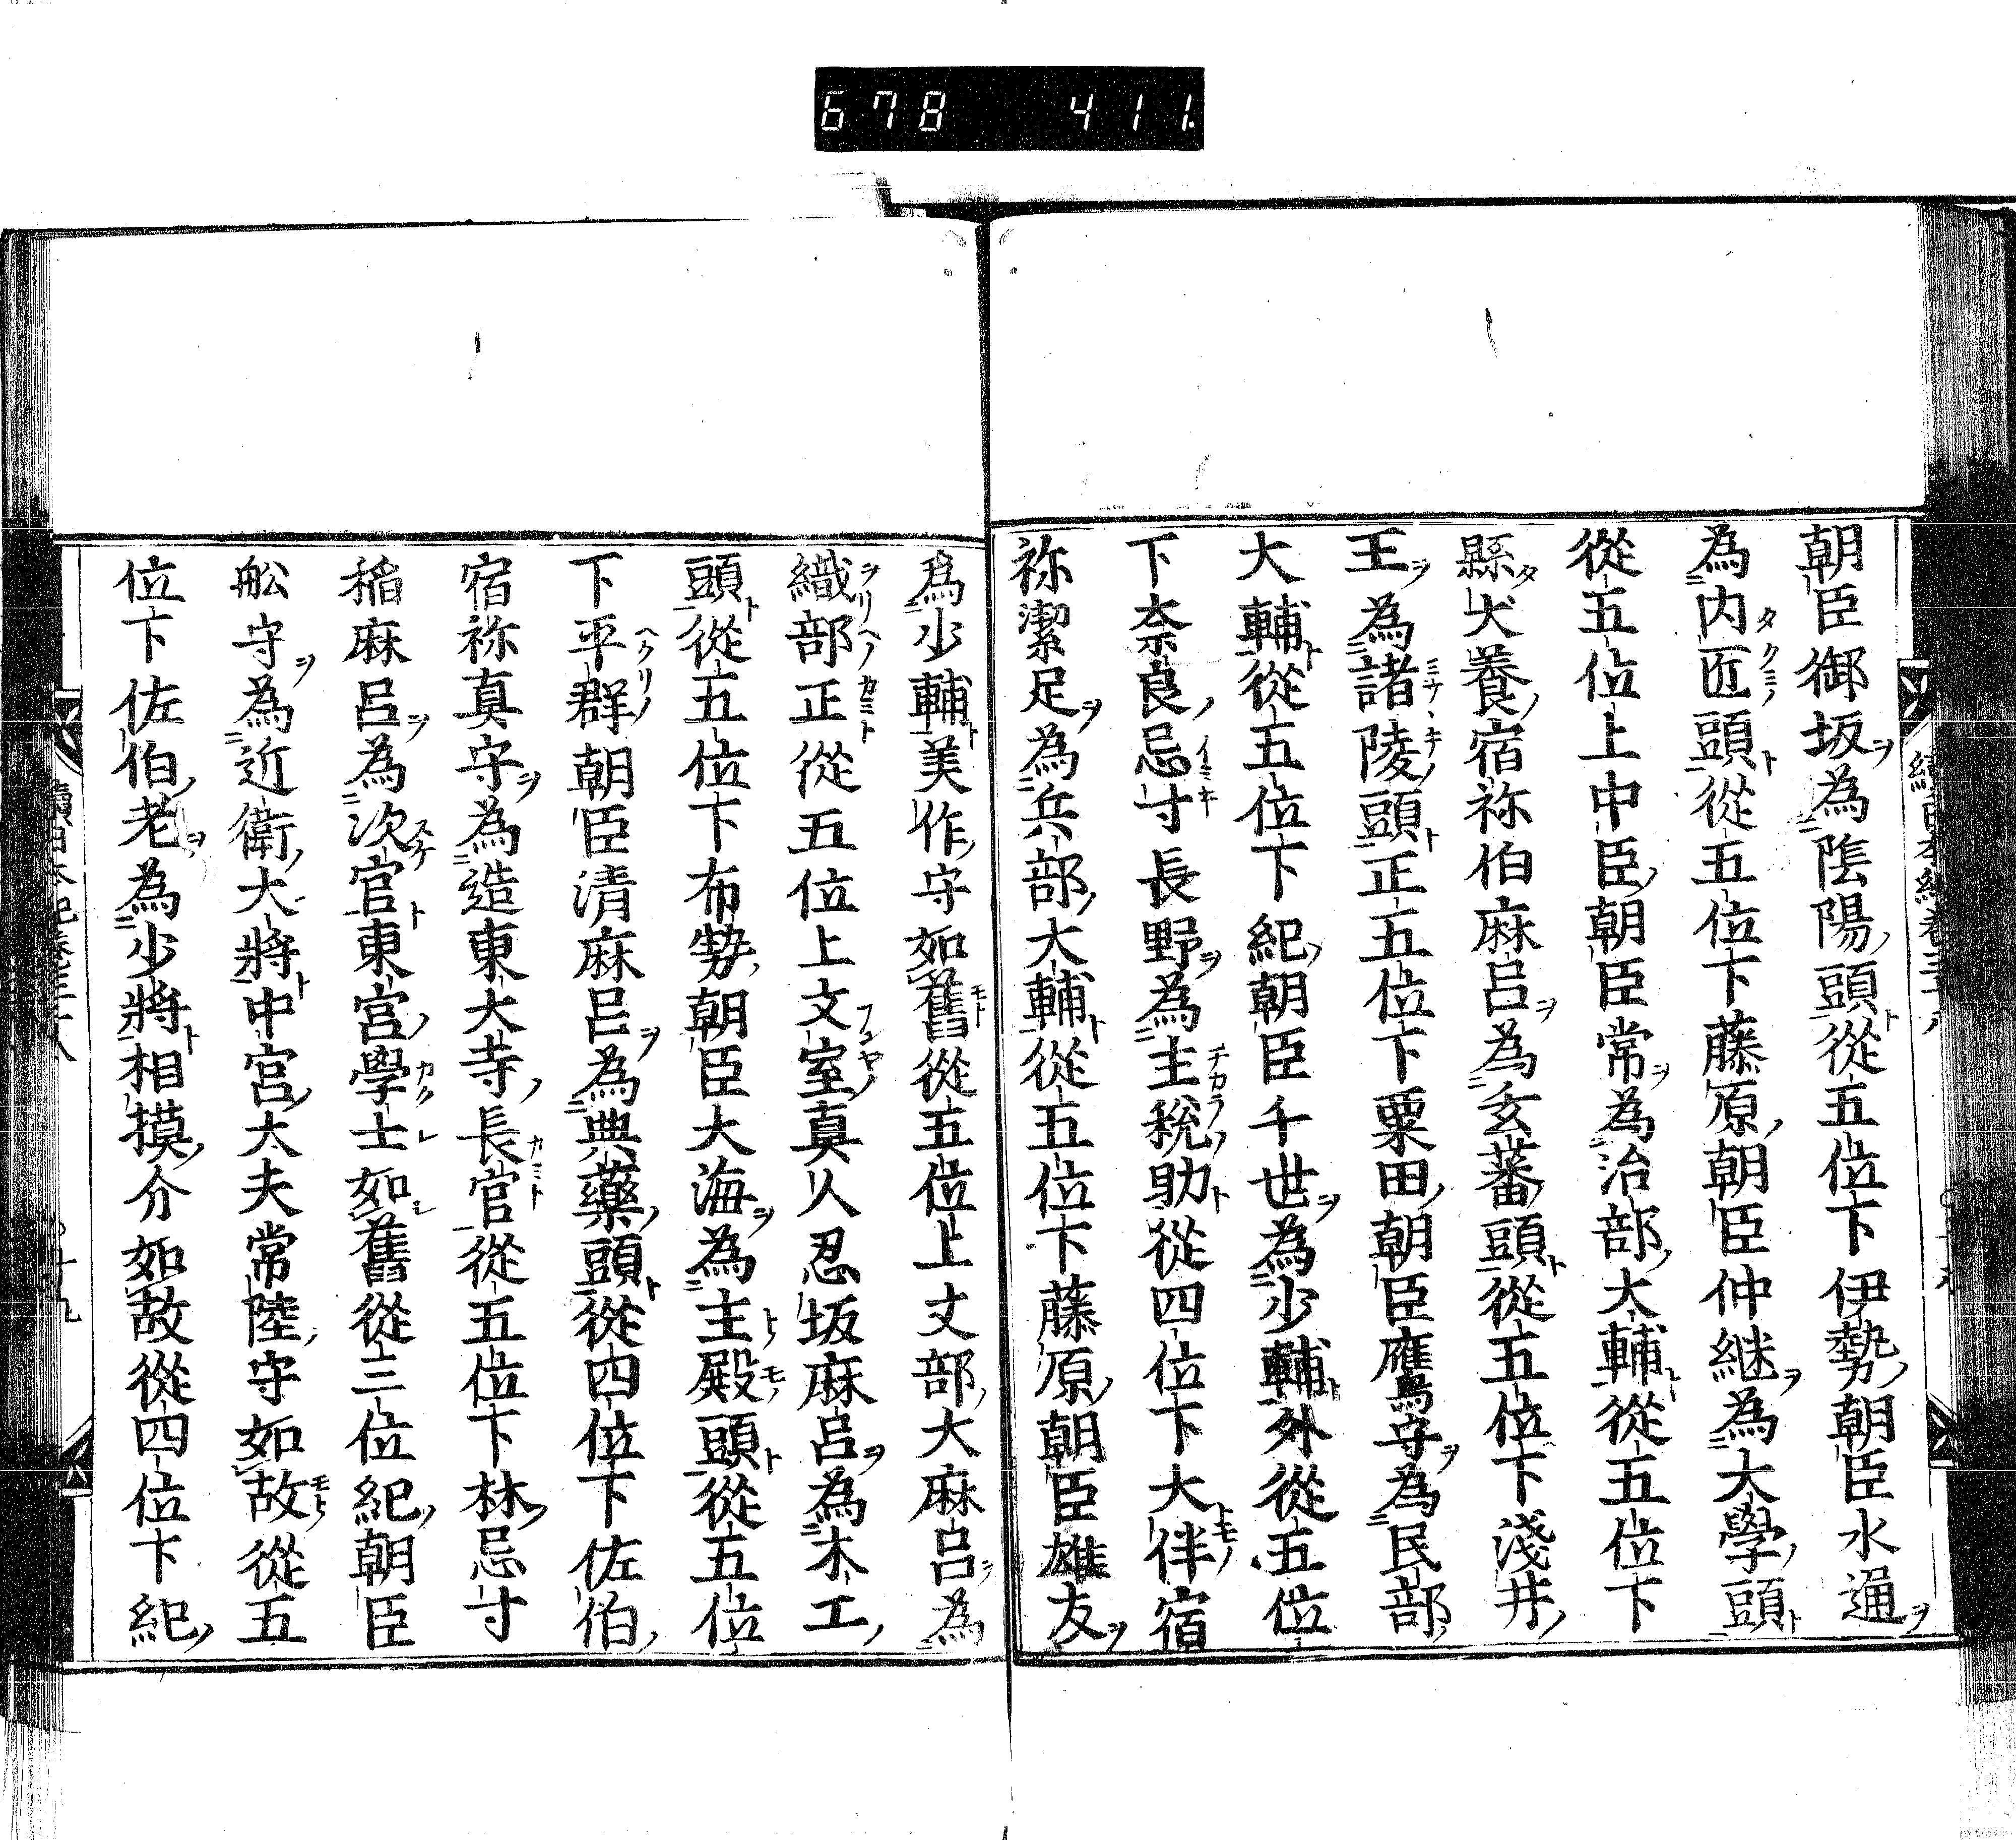 678 411
朝臣御坂ヲ為陰陽ノ頭ト從五位下伊勢ノ朝臣水通ヲ
為内匠頭ト從五位下藤原ノ朝臣仲継ヲ為大學ノ頭ト
從五位上中臣ノ朝臣常ヲ為治部ノ大輔ト從五位下
縣犬養ノ宿祢伯麻呂ヲ為玄蕃頭ト從五位下淺井ノ
王ヲ為諸陵頭ト正五位下粟田ノ朝臣鷹守ヲ為民部ノ
大輔ト從五位下紀ノ朝臣千世ヲ為少輔ト外從五位
下奈良ノ忌寸長野ヲ為主税助ト從四位下大伴宿
祢潔足ヲ為兵部ノ大輔ト從五位下藤原ノ朝臣雄友ヲ
為少輔ト美作ノ守如舊從五位上丈部ノ大麻呂ヲ為
織部正從五位上文室真人忍坂麻呂ヲ為木工ノ
頭ト從五位下布勢ノ朝臣大海ヲ為主殿頭ト從五位
下平群朝臣清麻呂ヲ為典藥ノ頭ト從四位下佐伯ノ
宿祢真守ヲ為造東大寺ノ長官從五位下林ノ忌寸
稲麻呂ヲ為次官ト東宮ノ學士如舊從三位紀ノ朝臣
舩守ヲ為近衛ノ大將ト中宮ノ大夫常陸ノ守如故從五
位下佐伯ノ老ヲ為少將ト相摸ノ介如故從四位下紀ノ